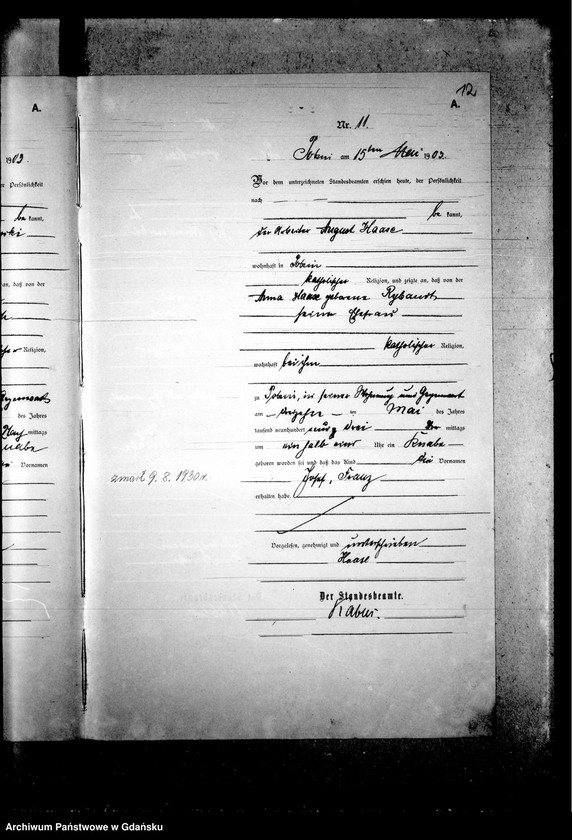 A.
12
A.
1903.
er Persönlichkeit
be kannt,
an, daß von der
Religion,
des Jahres
mittags
Vornamen
Nr. 11.
am 15ten Mai 1903.
Vor dem unterzeichneten Standesbeamten erschien heute, der Persönlichkeit
nach
be kannt,
der Arbeiter August Haase
wohnhaft in
katholischer Religion, und zeigte an, daß von der
Anna Haase geborene Rybandt
seine Ehefrau
katholischer Religion,
wohnhaft bei ihm
zu in seiner Wohnung und Gegenwart
am ten Mai des Jahres
tausend neunhundert und drei Vor mittags
um halb Uhr ein Knabe
geboren worden sei und daß das Kind die Vornamen
zmarł 9. 8. 1930 r.
Josef, Franz
erhalten habe.
Vorgelesen, genehmigt und unterschrieben
Haase
Der Standesbeamte.
Archiwum Państwowe w Gdańsku